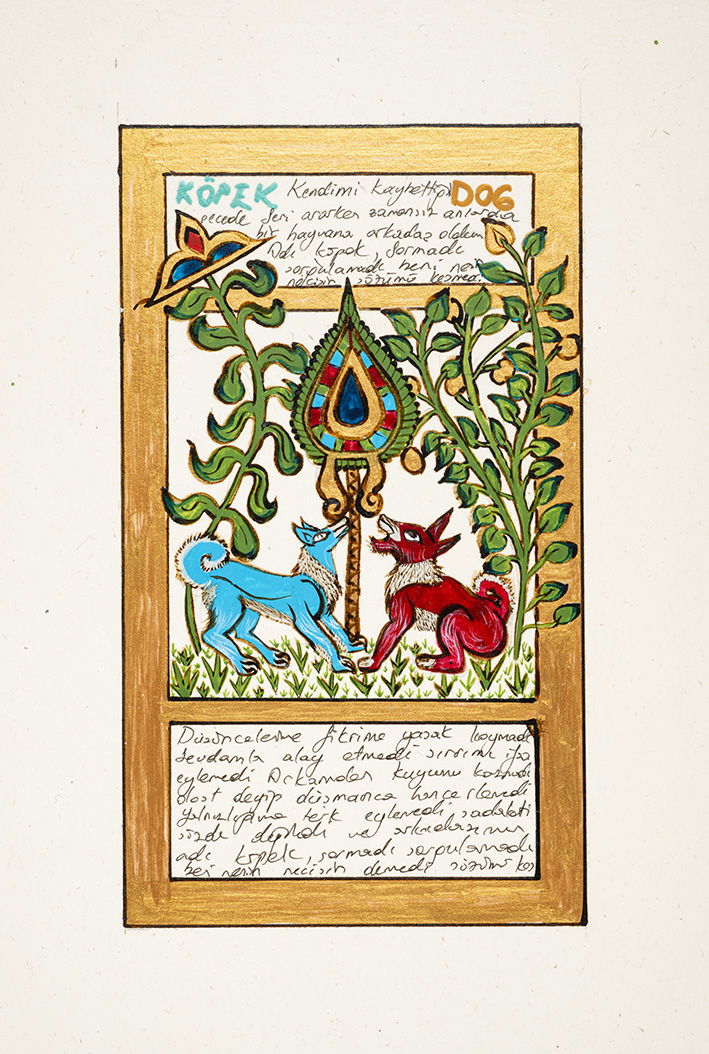 KÖPEK Kendimi kaybettiğim DOG
gecede seni ararken zamansız anlarda
bir hayvana arkadaş oldum
Adı köpek, sormadı
sorgulamadı beni nesin
necisin sözümü kesmedi.
Düşünceleme fikrime yasak koymadı
sevdamla alay etmedi sırrımı ifşa
eylemedi Arkamdan kuyumu kazmadı
dost deyip düşmanca hançerlemedi
Yalnızlığıma terk eylemedi sadakati
sözde değildi ve arkadaşımın
adı köpek, sormadı sorgulamadı
beni nesin necisin demedi sözümü kes